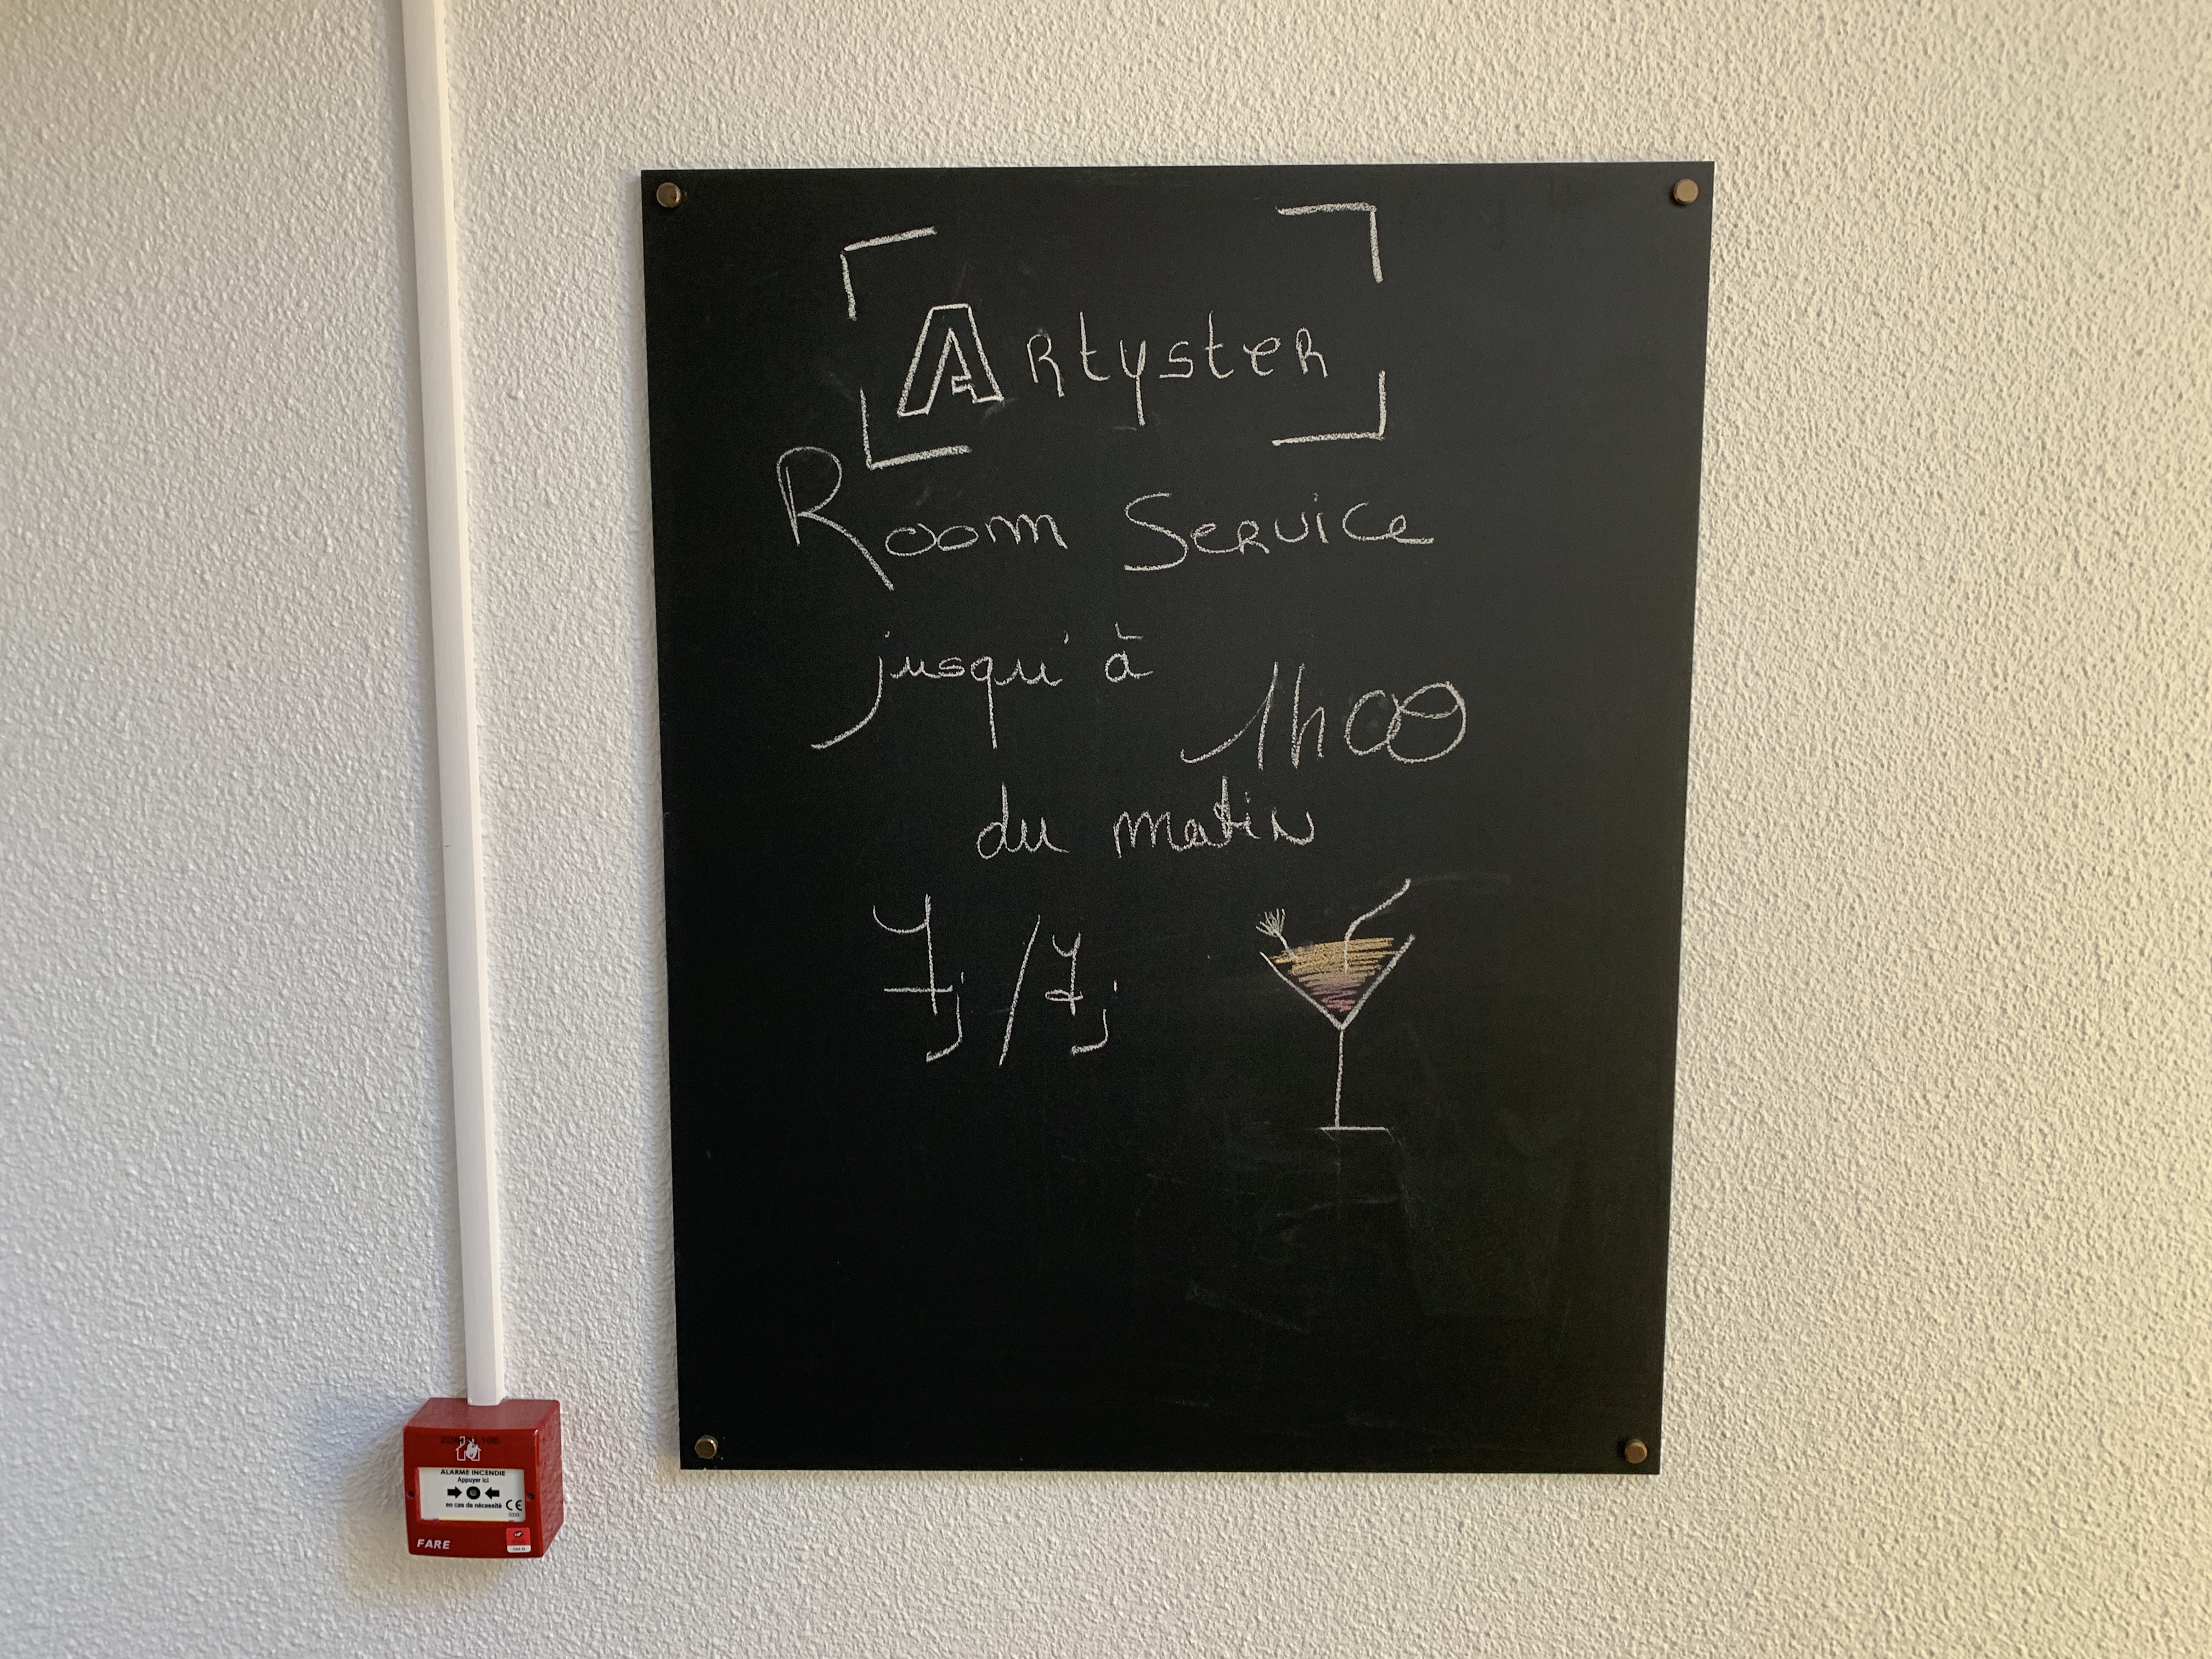 Artyster
Room Service
jusqu'à
1h00
du matin
7j/7j
ALARME INCENDIE
Appuyer ici
en cas de nécessité CE
FARE